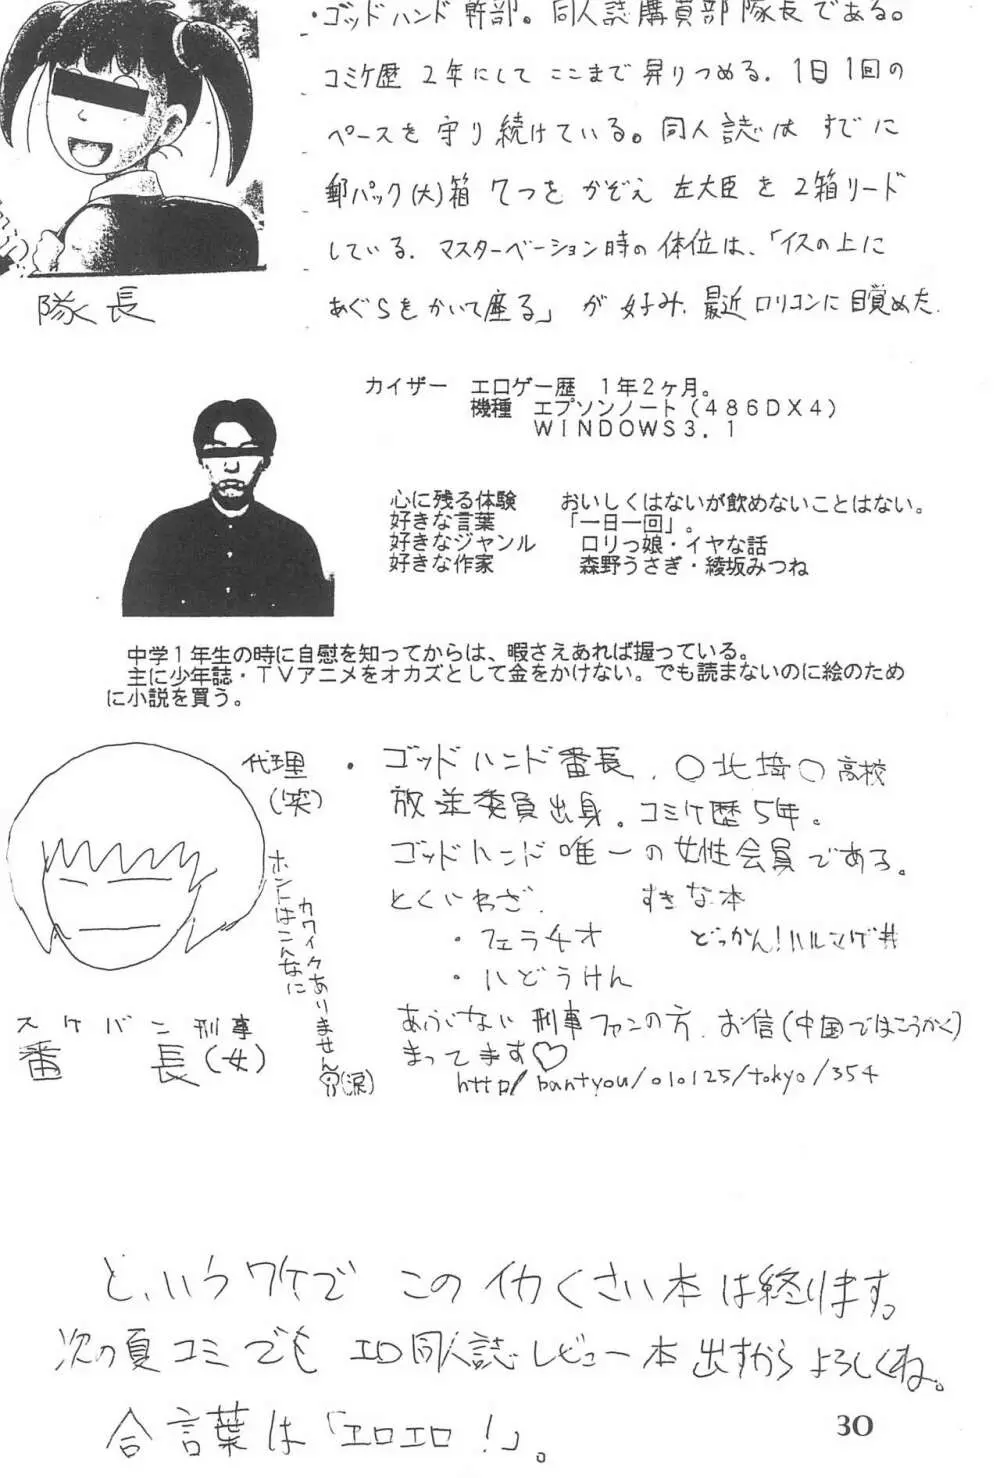 ・ゴッドハンド幹部。同人誌購買部隊長である。
コミケ歴 2年にしてここまで昇りつめる。1日1回の
ペースを守り続けている。同人誌はすでに
郵パック(大)箱 7つをかぞえ 左大臣を2箱リード
している。マスターベーション時の体位は、「イスの上に
あぐらをかいて座る」が好み。最近ロリコンに目覚めた。
隊長
カイザー エロゲー歴 1年2ヶ月。
機種 エプソンノート(486DX4)
WINDOWS3.1
心に残る体験 おいしくはないが飲めないことはない。
好きな言葉 「一日一回」。
好きなジャンル ロリっ娘・イヤな話
好きな作家 森野うさぎ・綾坂みつね
中学1年生の時に自慰を知ってからは、暇さえあれば握っている。
主に少年誌・TVアニメをオカズとして金をかけない。でも読まないのに絵のため
に小説を買う。
代理
(笑)
ホントはこんなに
カワイクありません
(涙)
スケバン刑事
番長(女)
・ゴッドハンド番長。○北埼○高校
放送委員出身。コミケ歴5年。
ゴッドハンド唯一の女性会員である。
とくいわざ. すきな本
・フェラチオ どっかん!ハルマゲ丼
・ハどうけん
あぶない刑事ファンの方。お信(中国ではこうかく)
まってます♡
http/bantyou/010125/tokyo/354
と、いうワケで このイカくさい本は終ります。
次の夏コミでも エロ同人誌レビュー本出すからよろしくね。
合言葉は「エロエロ!」。
30